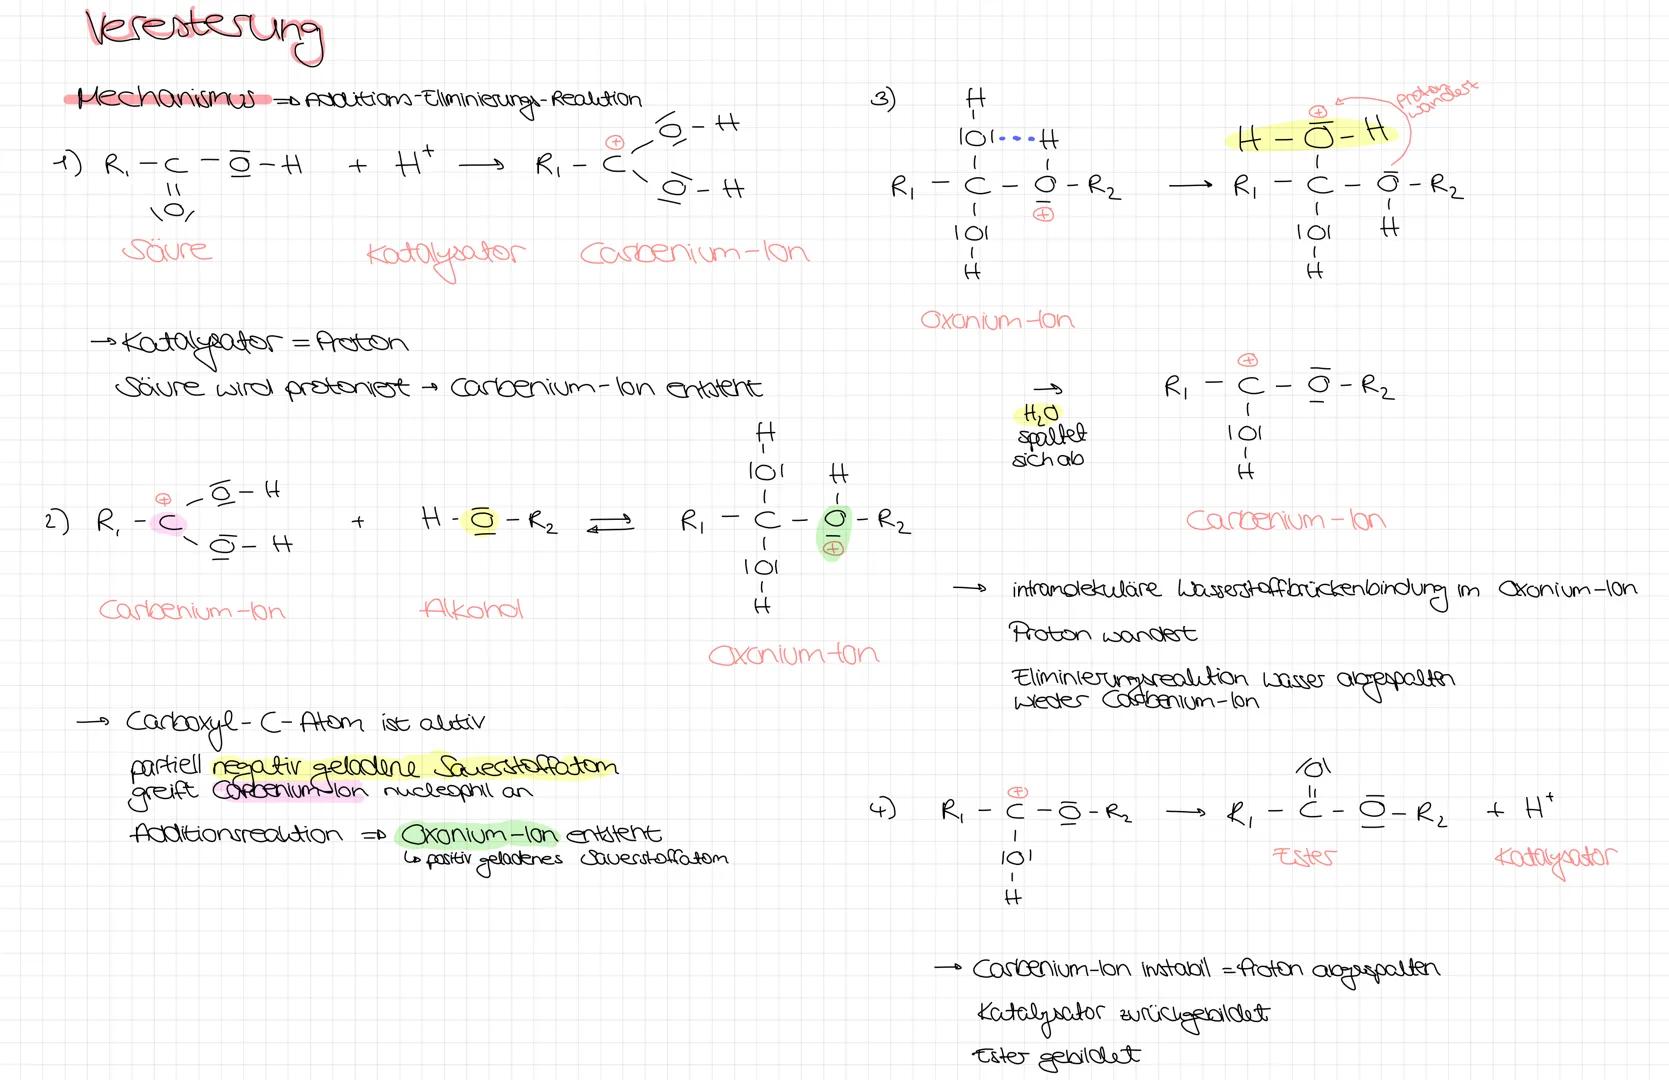 Veresterung
Mechanismus ⇒ Additions-Eliminierungs-Reaktion
1) R₁ - C - O - H + H⁺ → R₁ - C⊕
O
O - H
O - H
Säure Katalysator Carbenium-Ion
→ Katalysator = Proton
Säure wird protoniert → Carbenium-Ion entsteht
2) R₁ - C⊕ + H - O - R₂ ⇌ R₁ - C - O - R₂
O - H
O - H
H
IOI H
⊕
IOI
H
Carbenium-Ion Alkohol
Oxonium-Ion
→ Carboxyl-C-Atom ist aktiv
partiell negativ geladene Sauerstoffatom
greift Carbenium-Ion nucleophil an
Additionsreaktion ⇒ Oxonium-Ion entsteht
↳ positiv geladenes Sauerstoffatom
3)
H
IOI···H
R₁ - C - O - R₂ → R₁ - C - O - R₂
⊕
IOI
H
Proton
wandert
⊕
H - O - H
IOI H
H
Oxonium-Ion
→
H₂O
spaltet
sich ab
⊕
R₁ - C - O - R₂
IOI
H
Carbenium-Ion
→ intramolekuläre Wasserstoffbrückenbindung im Oxonium-Ion
Proton wandert
Eliminierungsreaktion Wasser abgespalten
wieder Carbenium-Ion
4) R₁ - C⊕ - O - R₂ → R₁ - C - O - R₂ + H⁺
IOI
H
OI
Ester Katalysator
→ Carbenium-Ion instabil = Proton abgespalten
Katalysator zurückgebildet
Ester gebildet